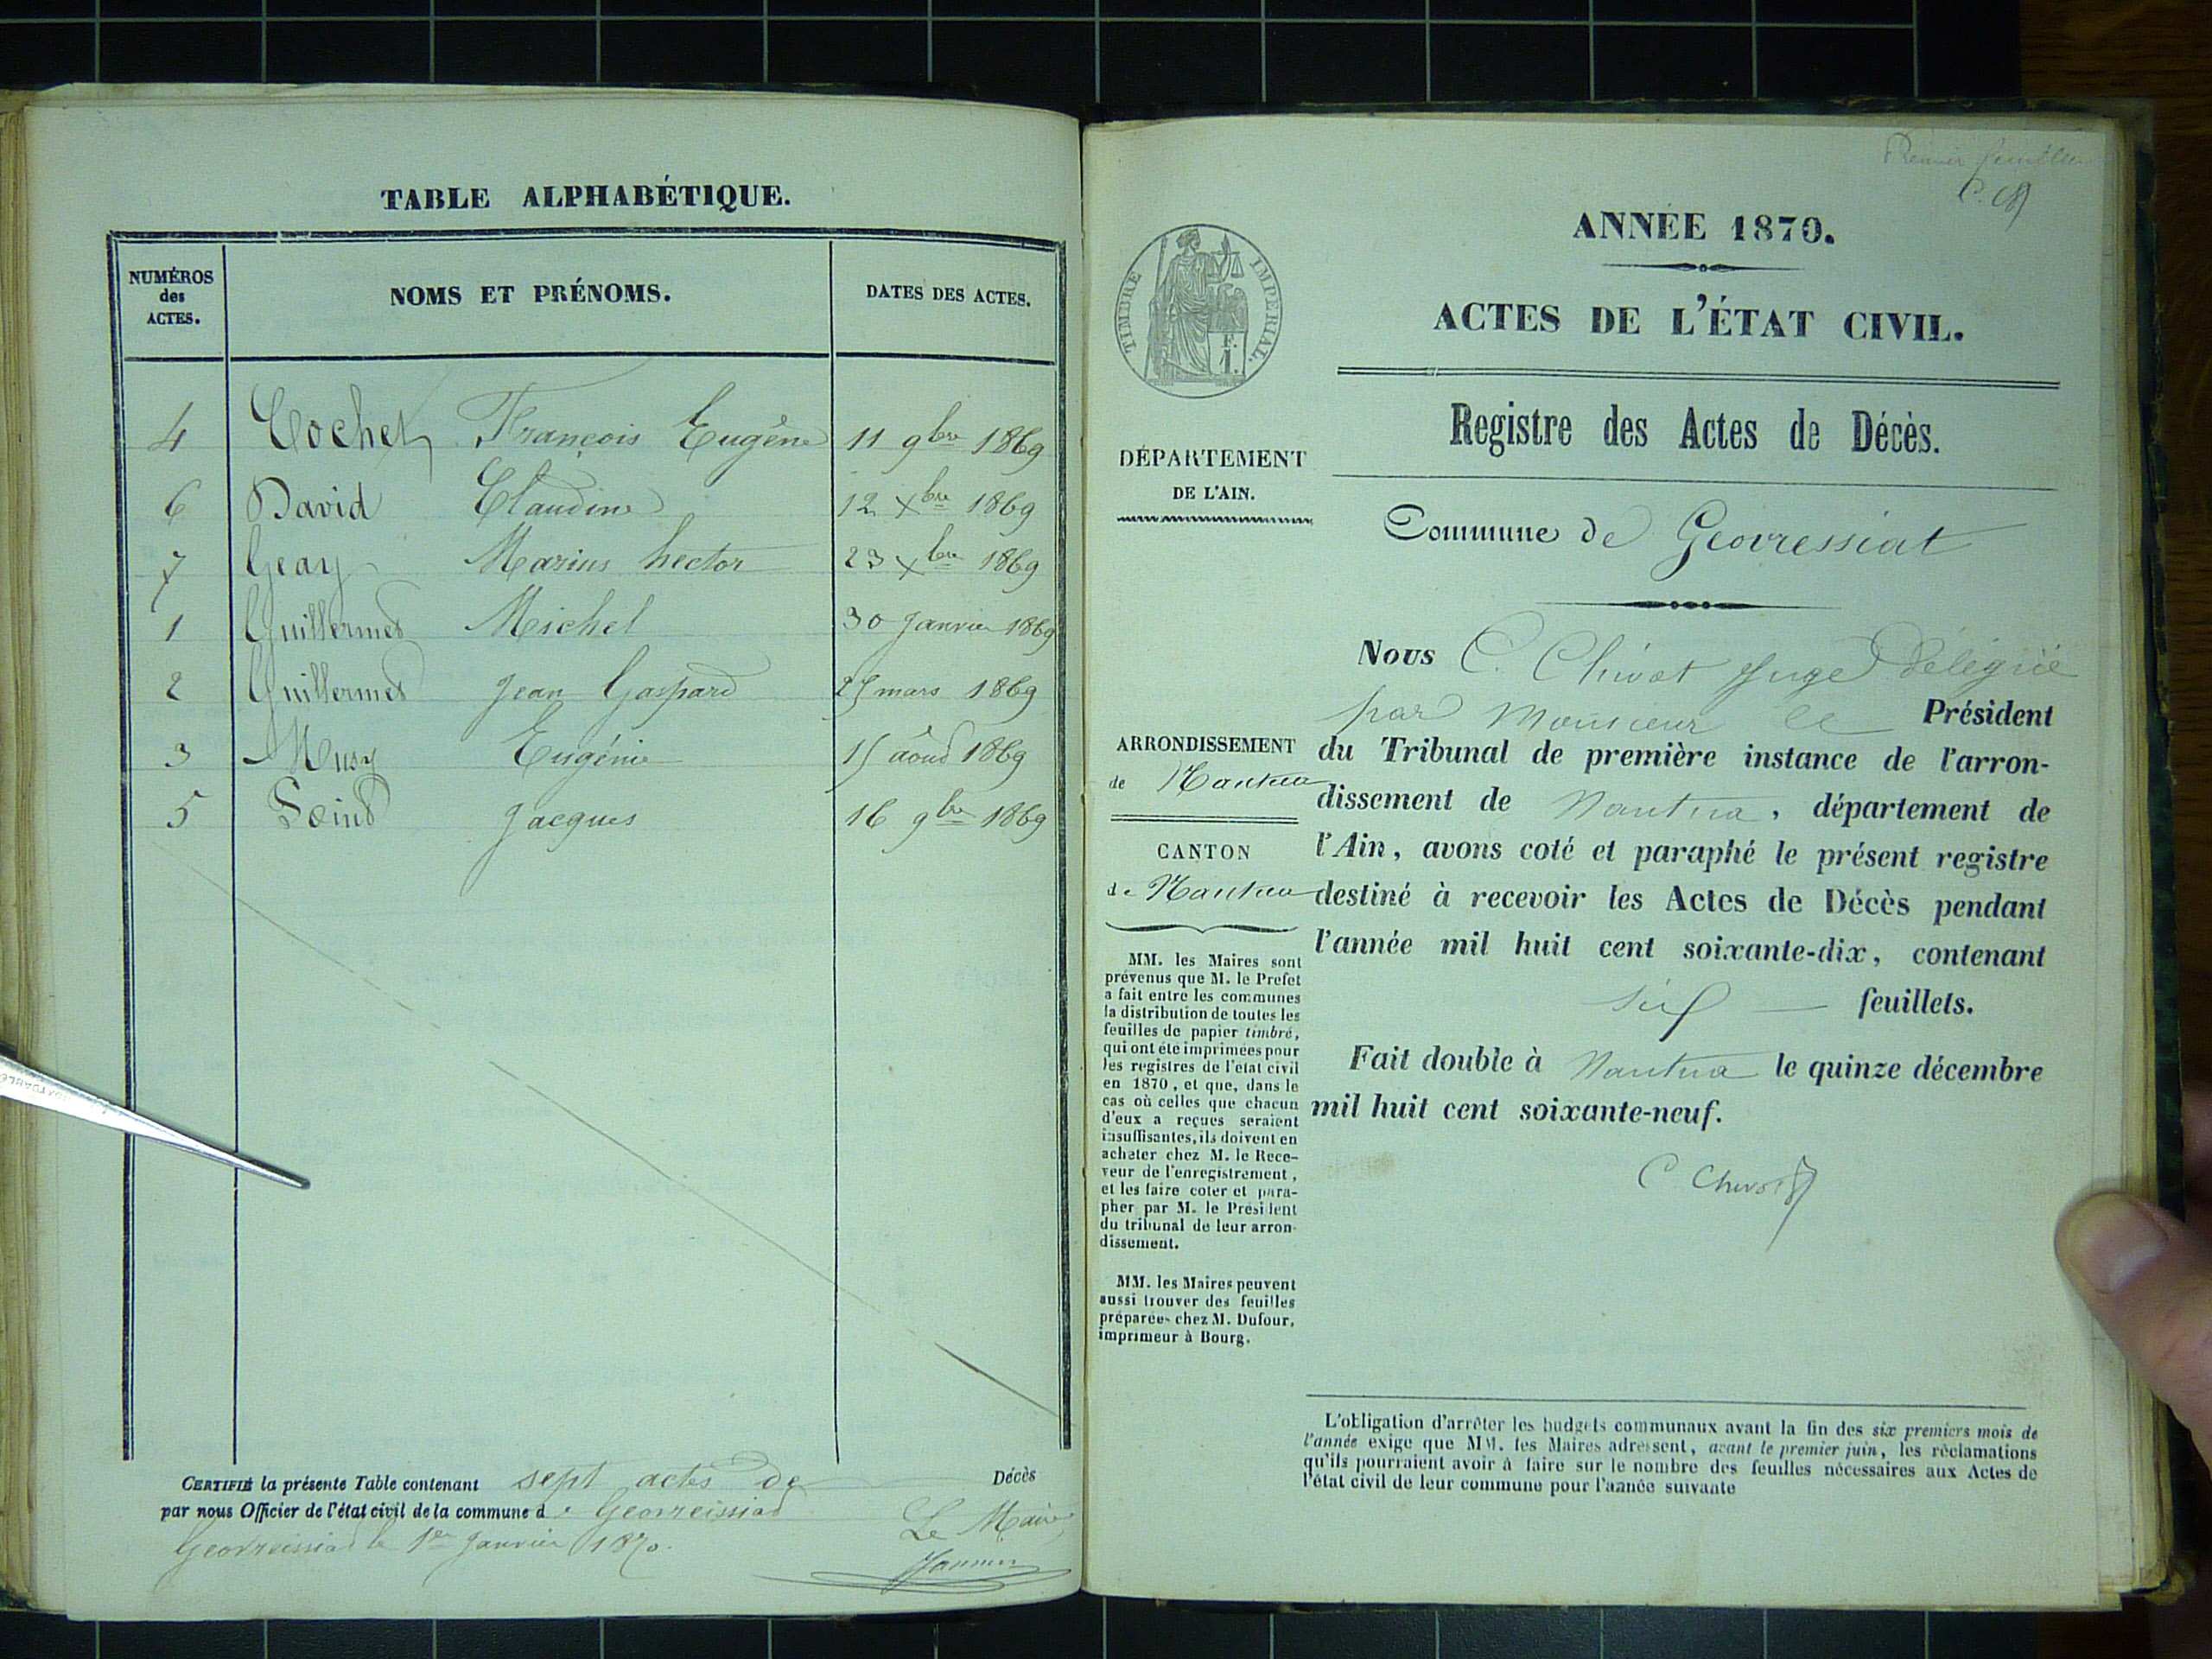 TABLE ALPHABÉTIQUE.
NUMÉROS
des
ACTES.
NOMS ET PRÉNOMS.
DATES DES ACTES.
4 Cochet François Eugène 11 9bre 1869
6 David Claudine 12 Xbre 1869
7 Geay Marius hector 23 Xbre 1869
1 Guillermet Michel 30 Janvier 1869
2 Guillermet Jean Gaspard 25 mars 1869
3 Musy Eugénie 15 août 1869
5 Jacques 16 9bre 1869
CERTIFIÉ la présente Table contenant sept actes de Décès
par nous Officier de l'état civil de la commune d e Geovreissiat
Geovreissiat le 1er Janvier 1870.
Le Maire
Premier feuillet
C. Ch
ANNÉE 1870.
ACTES DE L'ÉTAT CIVIL.
TIMBRE IMPÉRIAL.
F.
1.
Registre des Actes de Décès.
DÉPARTEMENT
DE L'AIN.
Commune de Geovressiat
Nous C. Chivot Juge Délégué
par Monsieur le Président
du Tribunal de première instance de l'arron-
dissement de Nantua, département de
l'Ain, avons coté et paraphé le présent registre
destiné à recevoir les Actes de Décès pendant
l'année mil huit cent soixante-dix, contenant
six feuillets.
Fait double à Nantua le quinze décembre
mil huit cent soixante-neuf.
C. Chivot
ARRONDISSEMENT
de Nantua
CANTON
de Nantua
MM. les Maires sont
prévenus que M. le Préfet
a fait entre les communes
la distribution de toutes les
feuilles de papier timbré,
qui ont été imprimées pour
les registres de l'état civil
en 1870, et que, dans le
cas où celles que chacun
d'eux a reçues seraient
insuffisantes, ils doivent en
acheter chez M. le Rece-
veur de l'enregistrement,
et les faire coter et para-
pher par M. le Président
du tribunal de leur arron-
dissement.
MM. les Maires peuvent
aussi trouver des feuilles
préparées chez M. Dufour,
imprimeur à Bourg.
L'obligation d'arrêter les budgets communaux avant la fin des six premiers mois de
l'année exige que MM. les Maires adressent, avant le premier juin, les réclamations
qu'ils pourraient avoir à faire sur le nombre des feuilles nécessaires aux Actes de
l'état civil de leur commune pour l'année suivante